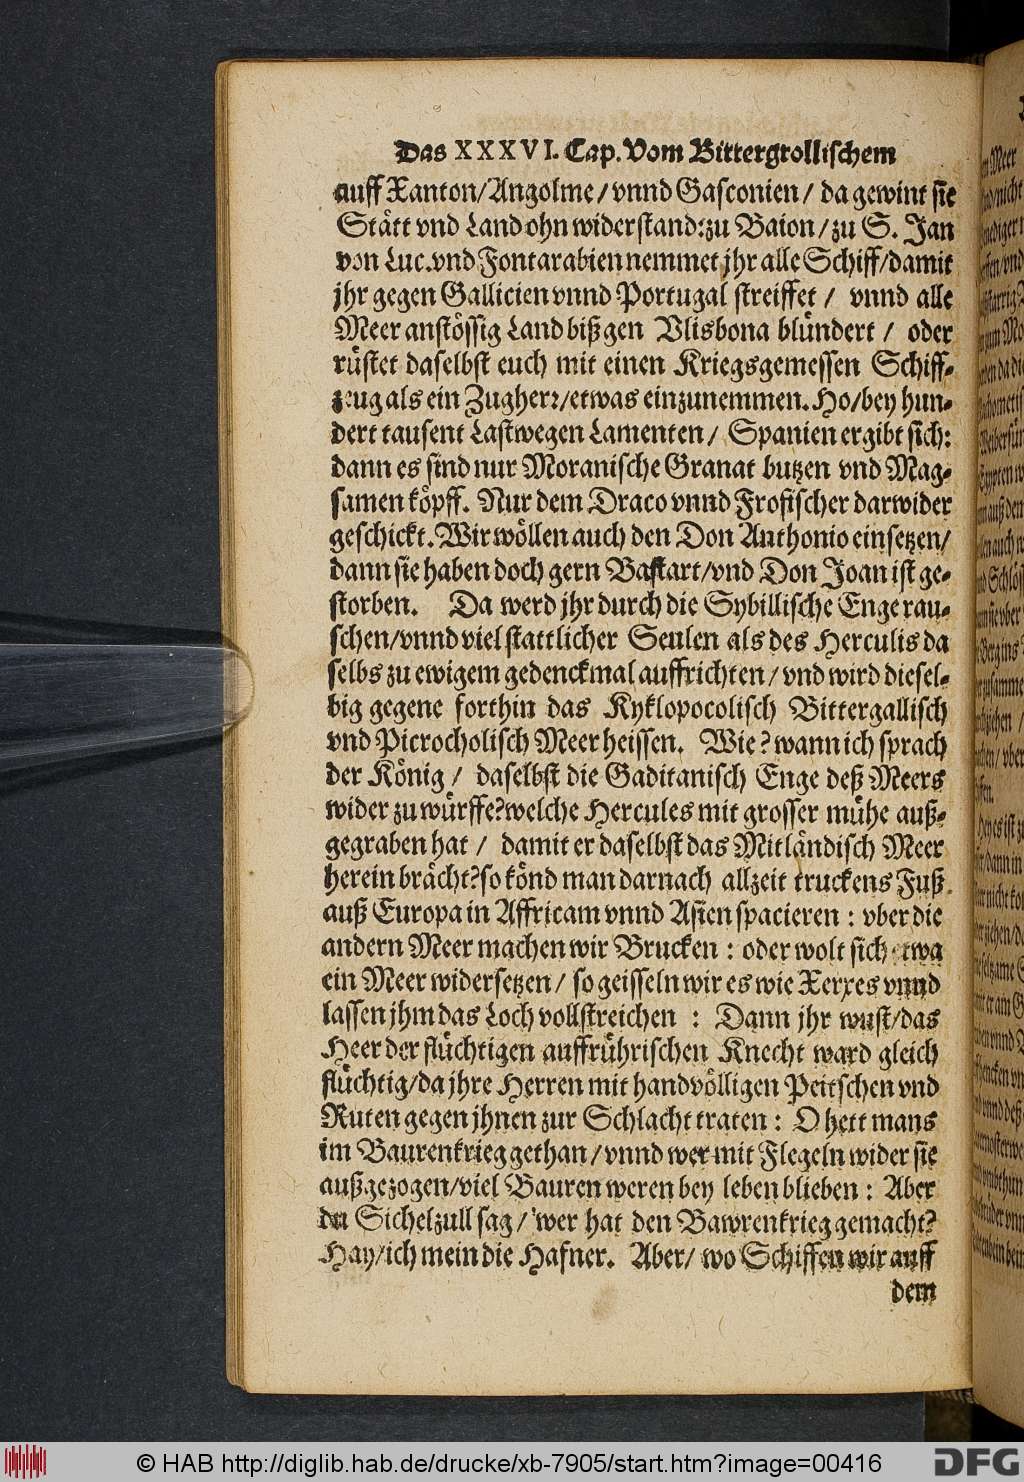 Das XXXVI. Cap. Vom Bittergrollischem
auff Xanton/Angolme/vnnd Gasconien/ da gewint sie
Stätt vnd Land ohn widerstand:zu Baion/zu S. Jan
von Luc.vnd Fontarabien nemmet jhr alle Schiff/damit
jhr gegen Gallicien vnnd Portugal streiffet / vnnd alle
Meer anstössig Land biß gen Vlisbona blündert / oder
rüstet daselbst euch mit einen Kriegsgemessen Schiff-
zeug als ein Zugherr/etwas einzunemmen. Ho/bey hun-
dert tausent Lastwegen Lamenten/ Spanien ergibt sich:
dann es sind nur Moranische Granat butzen vnd Mag-
samen köpff. Nur dem Draco vnnd Frofischer darwider
geschickt. Wir wöllen auch den Don Anthonio einsetzen/
dann sie haben doch gern Bastart/vnd Don Joan ist ge-
storben. Da werd jhr durch die Sybillische Enge rau-
schen/vnnd viel stattlicher Seulen als des Herculis da
selbs zu ewigem gedenckmal auffrichten/ vnd wird diesel-
big gegene forthin das Kyklopocolisch Bittergallisch
vnd Picrocholisch Meer heissen. Wie? wann ich sprach
der König / daselbst die Gaditanisch Enge deß Meers
wider zu würffe?welche Hercules mit grosser mühe auß-
gegraben hat / damit er daselbst das Mitländisch Meer
herein brächt?so könd man darnach allzeit truckens Fuß
auß Europa in Affricam vnnd Asien spacieren : vber die
andern Meer machen wir Brucken : oder wolt sich etwa
ein Meer widersetzen/ so geisseln wir es wie Xerxes vnnd
lassen jhm das Loch vollstreichen : Dann jhr wust/das
Heer der flüchtigen auffrührischen Knecht ward gleich
flüchtig/da jhre Herren mit handvölligen Peitschen vnd
Ruten gegen jhnen zur Schlacht traten : O hett mans
im Baurenkrieg gethan/vnnd wer mit Flegeln wider sie
außgezogen/viel Bauren weren bey leben blieben : Aber
du Sichelzull sag/ wer hat den Bawrenkrieg gemacht?
Hay/ich mein die Hafner. Aber/ wo Schiffen wir auff
dem
© HAB http://diglib.hab.de/drucke/xb-7905/start.htm?image=00416
DFG